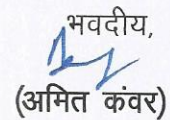 भवदीय,
(अमित कंवर)